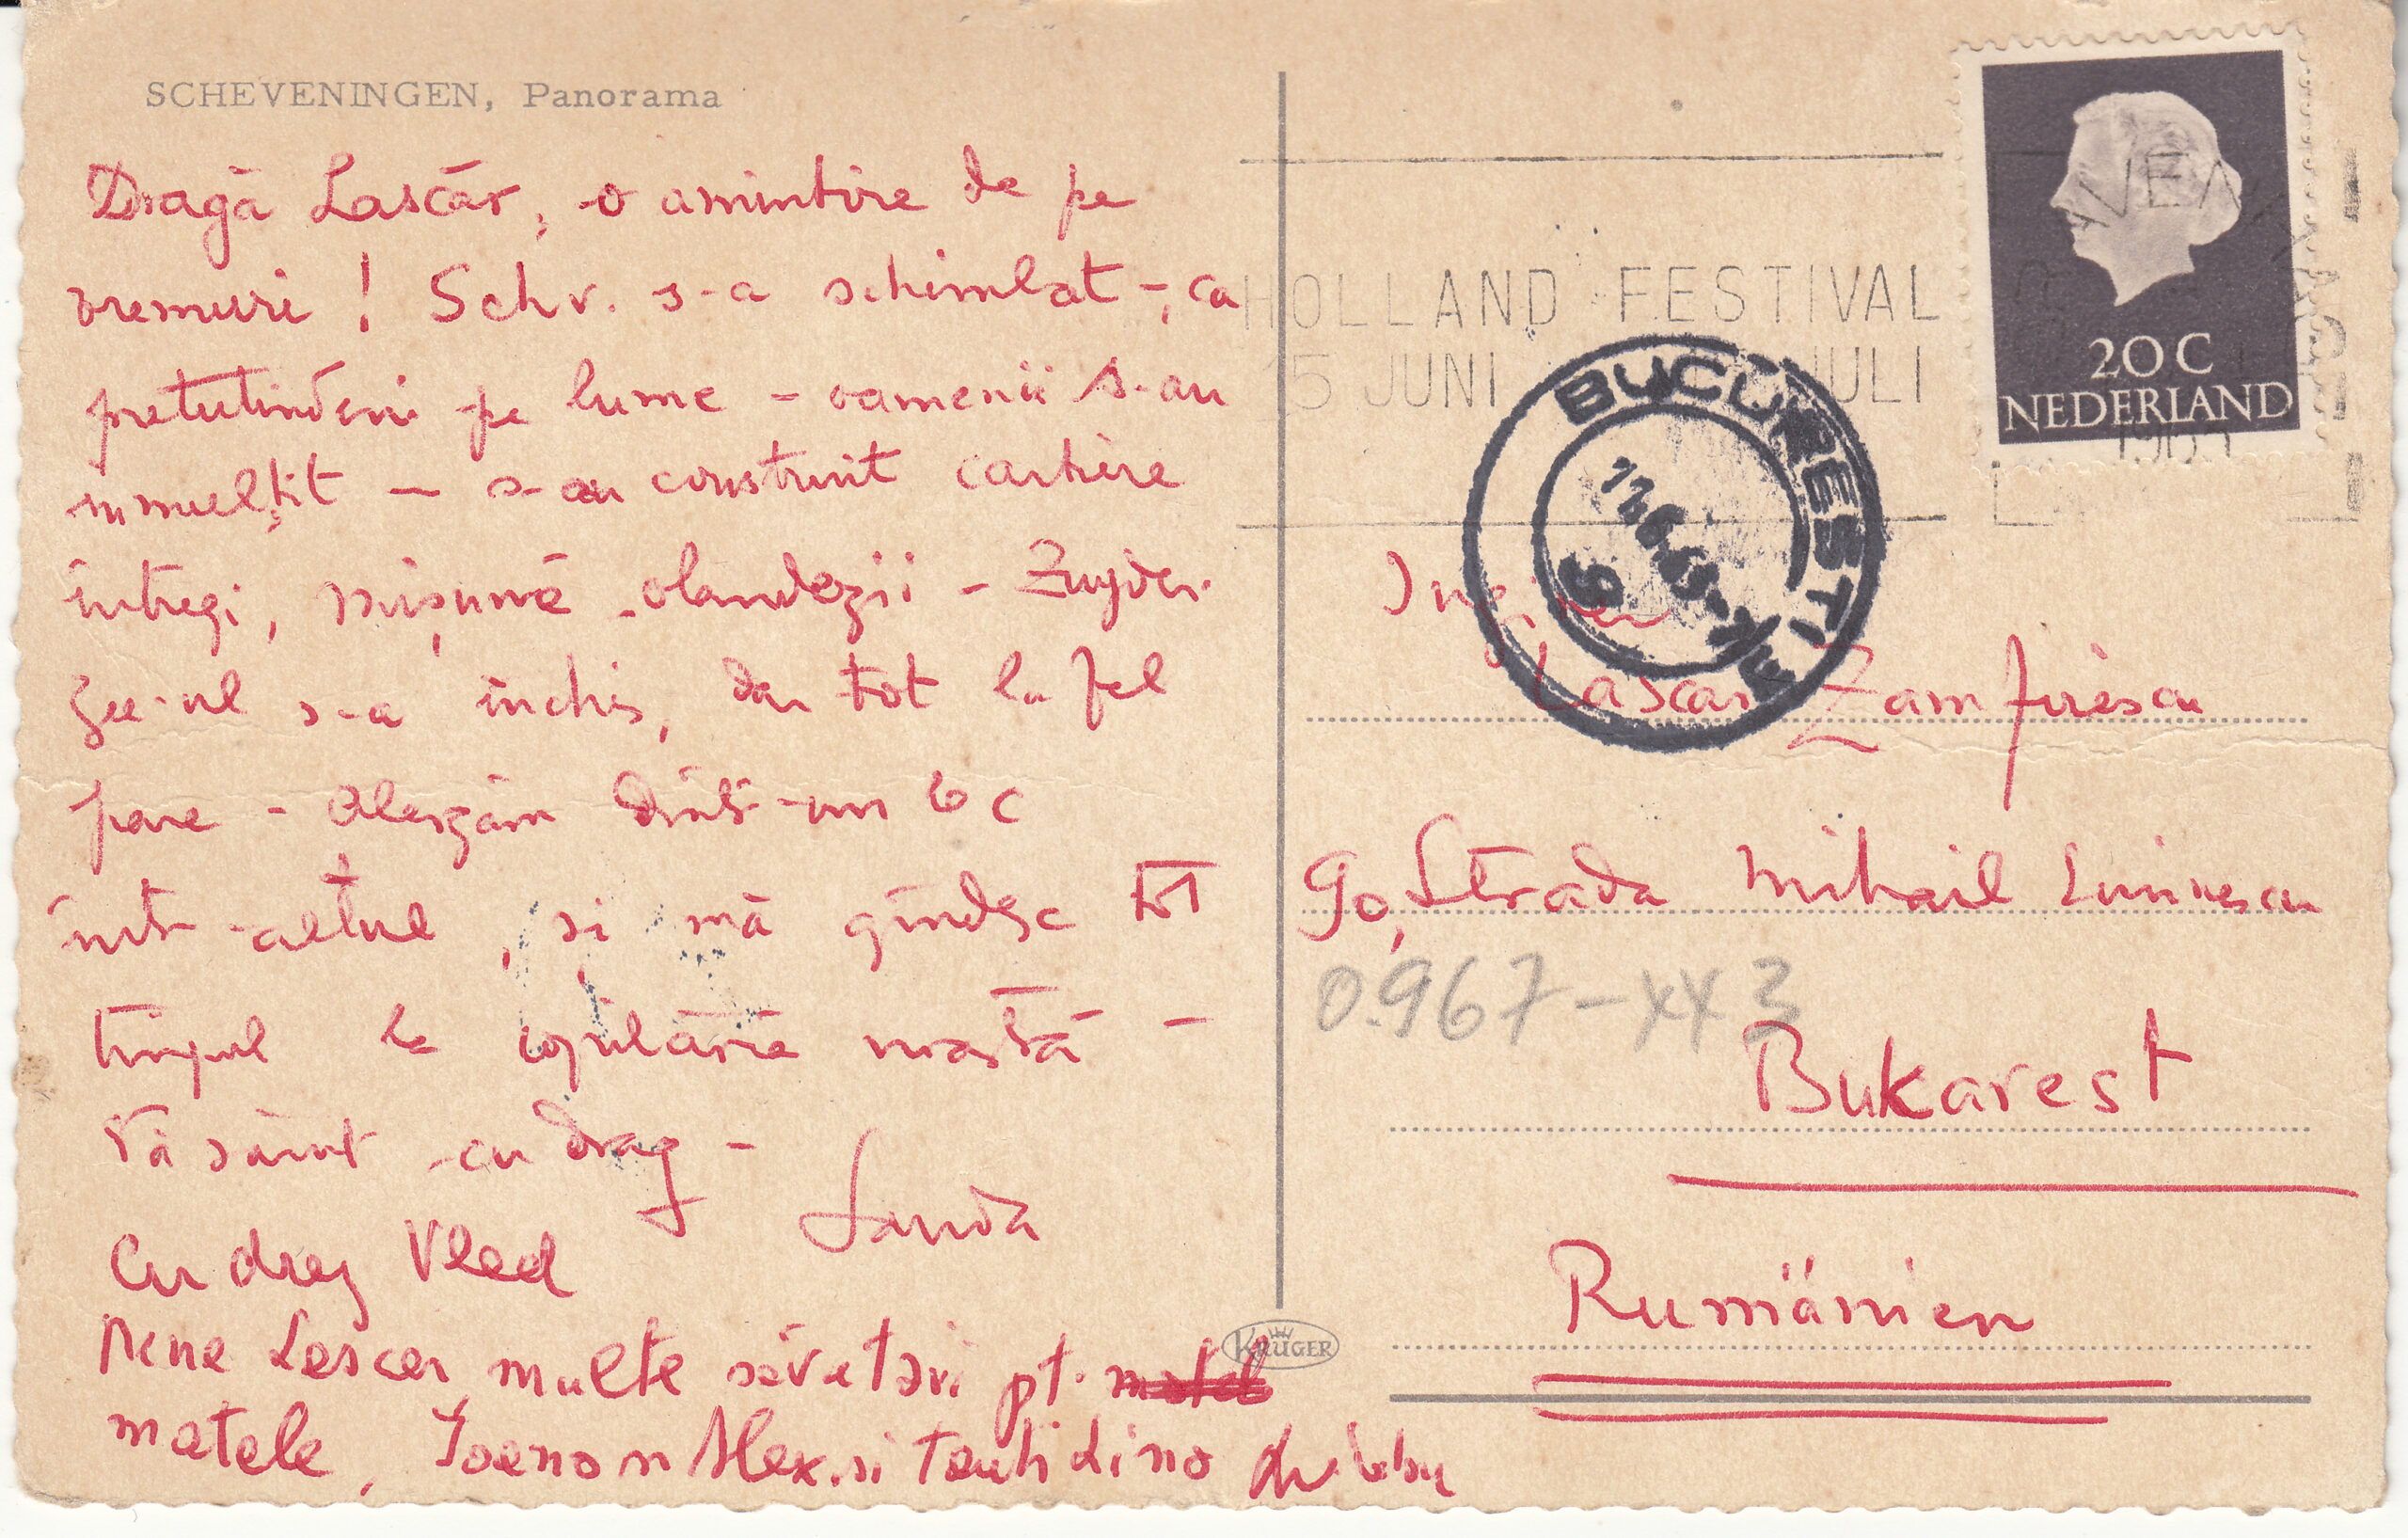 SCHEVENINGEN, Panorama
Dragă Lascăr, o amintire de pe
vremuri! Schv. s-a schimbat -, ca
pretutindeni pe lume - oamenii s-au
înmulțit - s-au construit cartiere
întregi, mișună olandezii - Zuyder-
Zee-ul s-a închis, dar tot la fel
pare - Alergăm dintr-un loc
într-altul, și mă gîndesc tot
timpul la copilăria noastră -
Vă sărut cu drag -
Sanda
Cu drag Vlad
Nene Lascar, multe săvutări pt.
matele, Ioana Alex. si tanti Lino
HOLLAND FESTIVAL
15 JUNI JULI
20 C
NEDERLAND
BUCUREȘTI
9
Inginer
Lascar Zamfirescu
90, Strada Mihail Eminescu
0.967-XX3
Bukarest
Rumänien
KRÜGER